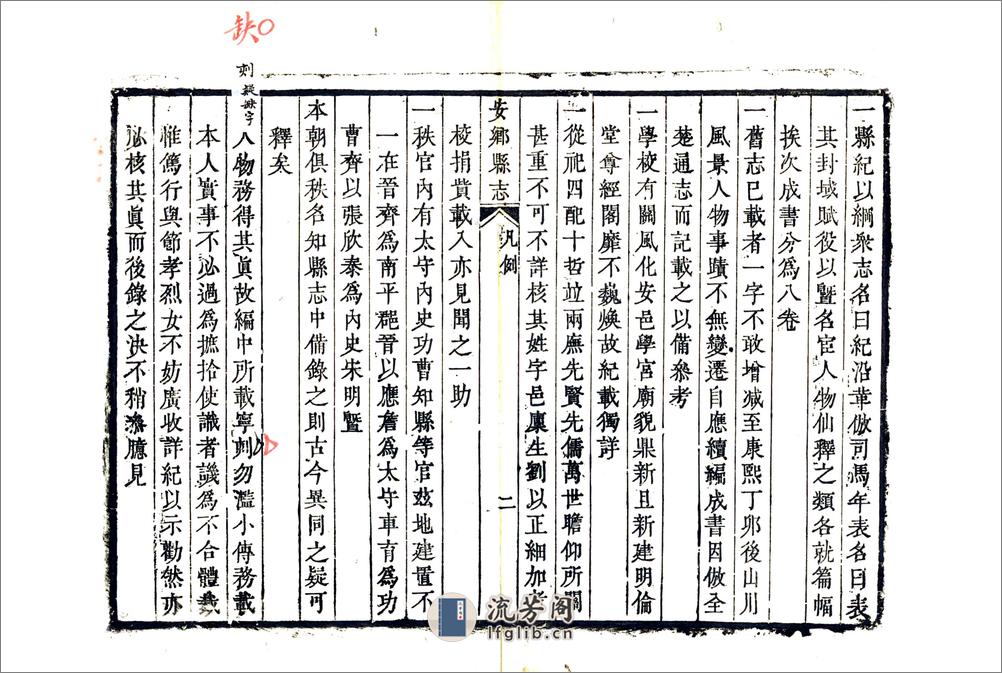 一縣紀以綱衆志名曰紀沿革倣司馬年表名曰表
其封域賦役以暨名宦人物仙釋之類各就篇幅
挨次成書分爲八卷
一舊志已載者一字不敢增减至康熙丁卯後山川
風景人物事蹟不無變遷自應續編成書因倣全
楚通志而記載之以備叅考
一學校有關風化安邑學宮廟貌鼎新且新建明倫
堂尊經閣靡不巍煥故紀載獨詳
一從祀四配十哲竝兩廡先賢先儒萬世瞻仰所關
甚重不可不詳核其姓字邑廩生劉以正細加考
安鄉縣志
凡例
二
校捐貲載入亦見聞之一助
一秩官內有太守內史功曹知縣等官茲地建置不
一在晉齊爲南平郡晉以應詹爲太守車育爲功
曹齊以張欣泰爲內史宋明暨
本朝俱秩名知縣志中備錄之則古今異同之疑可
釋矣
人物務得其眞故編中所載寧刻勿濫小傳務載
本人實事不必過爲摭拾使識者譏爲不合體裁
惟篤行與節孝烈女不妨廣收詳紀以示勸然亦
必核其眞而後錄之決不稍滲臆見
缺
刻
疑缺字
流芳阁
lfglib.cn